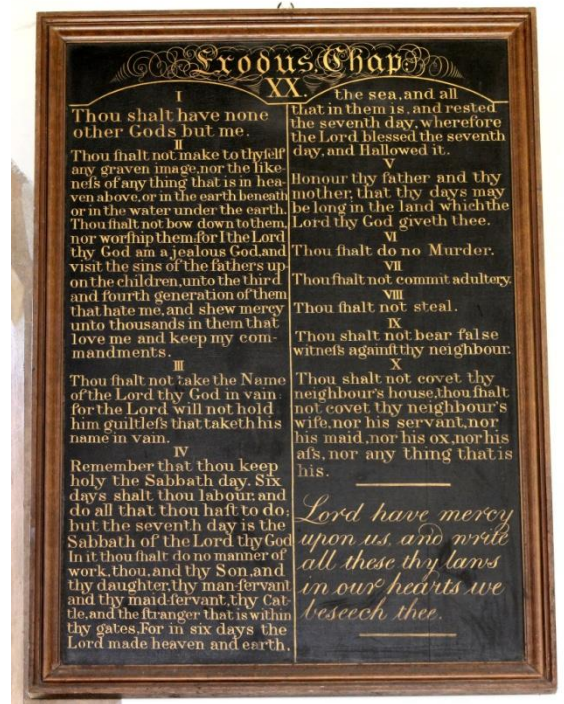 Exodus Chap:
XX.
I
Thou shalt have none
other Gods but me.
II
Thou ſhalt not make to thyſelf
any graven image, nor the like-
neſs of any thing that is in hea-
ven above, or in the earth beneath
or in the water under the earth.
Thou ſhalt not bow down to them,
nor worſhip them: for I the Lord
thy God am a jealous God, and
visit the sins of the fathers up-
on the children, unto the third
and fourth generation of them
that hate me, and shew mercy
unto thousands in them that
love me and keep my com-
mandments.
III
Thou ſhalt not take the Name
of the Lord thy God in vain:
for the Lord will not hold
him guiltleſs that taketh his
name in vain.
IV
Remember that thou keep
holy the Sabbath day. Six
days shalt thou labour, and
do all that thou haſt to do;
but the seventh day is the
Sabbath of the Lord thy God
In it thou ſhalt do no manner of
work, thou, and thy Son, and
thy daughter, thy man-ſervant
and thy maid-ſervant, thy Cat-
tle, and the ſtranger that is within
thy gates. For in six days the
Lord made heaven and earth,
the sea, and all
that in them is, and rested
the seventh day, wherefore
the Lord blessed the seventh
day, and Hallowed it.
V
Honour thy father and thy
mother, that thy days may
be long in the land which the
Lord thy God giveth thee.
VI
Thou ſhalt do no Murder.
VII
Thou ſhalt not commit adultery.
VIII
Thou ſhalt not steal.
IX
Thou shalt not bear false
witneſs againſt thy neighbour.
X
Thou shalt not covet thy
neighbour's house, thou ſhalt
not covet thy neighbour's
wife, nor his servant, nor
his maid, nor his ox, nor his
aſs, nor any thing that is
his.
Lord have mercy
upon us, and write
all these thy laws
in our hearts we
beseech thee.